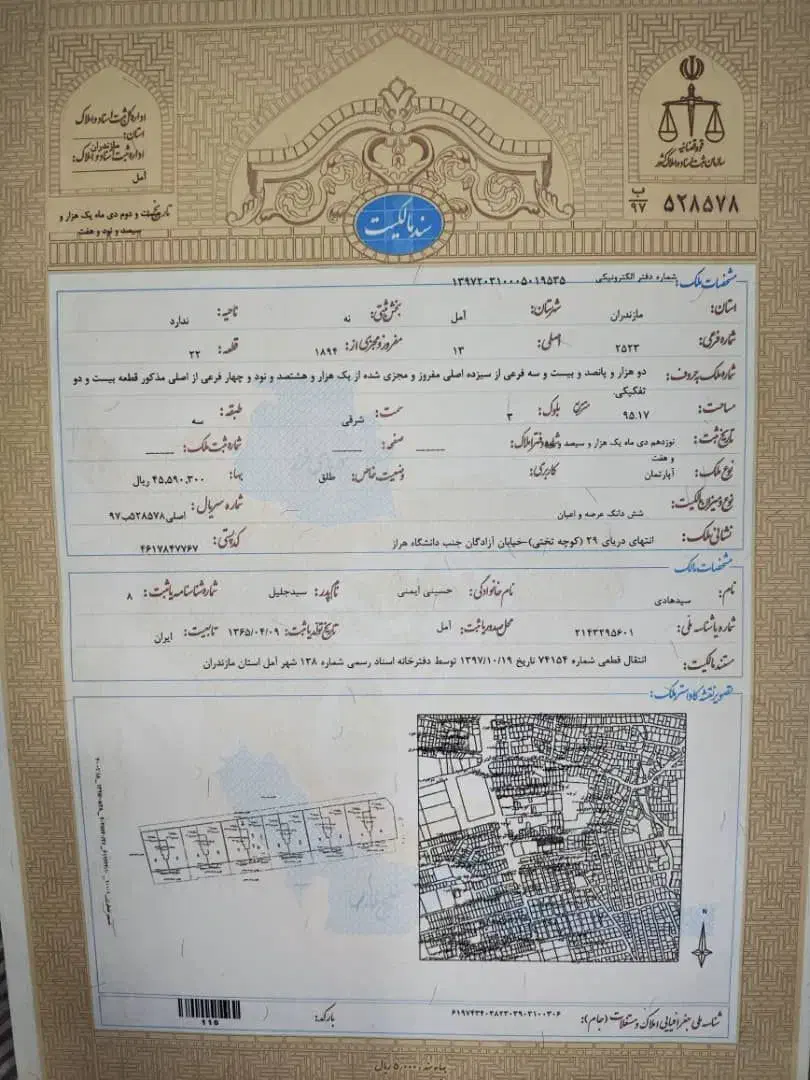 اداره کل ثبت اسناد و املاک
استان:
مازندران
اداره ثبت اسناد و املاک:
آمل
تاریخ: بیست و دوم دی ماه یک هزار و
سیصد و نود و هفت
قوه قضائیه
سازمان ثبت اسناد و املاک کشور
ب
۹۷
۵۲۸۵۷۸
سند مالکیت
مشخصات ملک: شماره دفتر الکترونیکی ۱۳۹۷۲۰۳۱۰۰۰۵۰۱۹۵۳۵
استان: مازندران شهرستان: آمل بخش ثبتی: نه ناحیه: ندارد
شماره فرعی: ۲۵۲۳ اصلی: ۱۳ مفروز و مجزی از: ۱۸۹۴ قطعه: ۲۲
شماره ملک به حروف: دو هزار و پانصد و بیست و سه فرعی از سیزده اصلی مفروز و مجزی شده از یک هزار و هشتصد و نود و چهار فرعی از اصلی مذکور قطعه بیست و دو
تفکیکی.
مساحت: ۹۵.۱۷ مترمربع بلوک: ۳ سمت: شرقی طبقه: سه
تاریخ ثبت: نوزدهم دی ماه یک هزار و سیصد و نود
و هفت
شماره دفتر املاک: صفحه: شماره ثبت ملک:
نوع ملک: آپارتمان کاربری: وضعیت خاص: طلق بها: ۴۵,۵۹۰,۳۰۰ ریال
نوع و میزان مالکیت: شش دانگ عرصه و اعیان شماره سریال: اصلی۵۲۸۵۷۸ب۹۷
نشانی ملک: انتهای دریای ۲۹ (کوچه تختی)-خیابان آزادگان جنب دانشگاه هراز کد پستی: ۴۶۱۷۸۴۷۷۶۷
مشخصات مالک
نام: سیدهادی نام خانوادگی: حسینی ایمنی نام پدر: سیدجلیل شماره شناسنامه یا ثبت: ۸
شماره یا شناسه ملی: ۲۱۴۳۲۹۵۶۰۱ محل صدور یا ثبت: آمل تاریخ تولد یا ثبت: ۱۳۶۵/۰۴/۰۹ تابعیت: ایران
مستند مالکیت: انتقال قطعی شماره ۷۴۱۵۴ تاریخ ۱۳۹۷/۱۰/۱۹ توسط دفترخانه اسناد رسمی شماره ۱۳۸ شهر آمل استان مازندران
تصویر نقشه کاداستر ملک:
N
شناسه ملی جغرافیایی املاک و مستغلات (جام): ۶۱۹۷۴۳۴۰۳۸۲۳۰۳۹۰۳۱۰۰۳۰۶ بارکد:
110
بهاء سند: ۵,۰۰۰ ریال